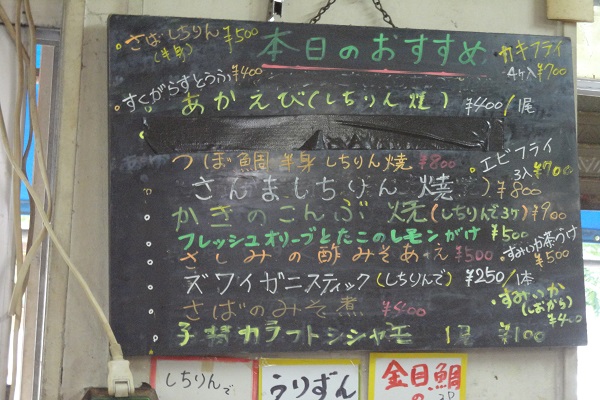 本日のおすすめ
さばしちりん ¥500
(半身)
すくがらすとうふ ¥400
カキフライ
4ヶ入 ¥700
あかえび(しちりん焼) ¥400/1尾
エビフライ
3入 ¥700
つぼ鯛半身しちりん焼 ¥800
さんましちりん焼 ) ¥800
かきのこんぶ焼(しちりんで3ヶ) ¥900
フレッシュオリーブとたこのレモンがけ ¥500
すみいか茶づけ
¥500
さしみの酢みそあえ ¥500
ズワイガニスティック(しちりんで) ¥250/1本
すみいか
(しおから)
¥400
さばのみそ煮 ¥400
子持カラフトシシャモ 1尾 ¥100
しちりんで
うりずん
金目鯛
の